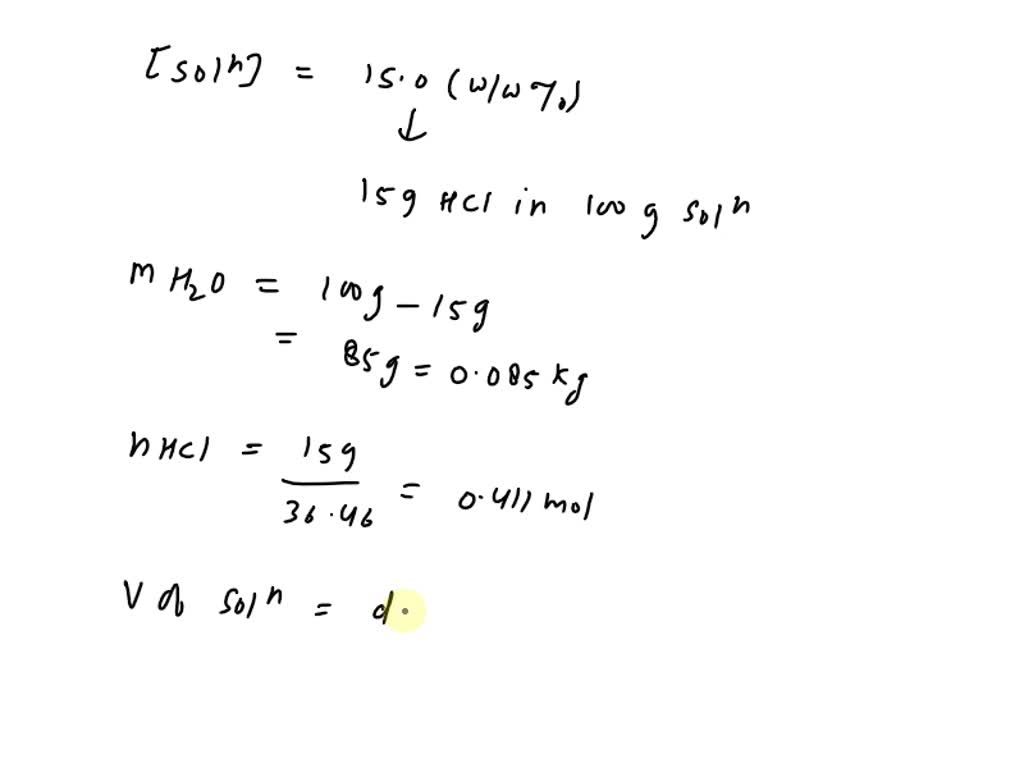 [solⁿ] = 15.0 (w/w %)
↓
15g HCl in 100 g solⁿ
m H₂O = 100g – 15g
= 85g = 0.085 kg
n HCl = 15g / 36.46 = 0.411 mol
V of solⁿ = d.